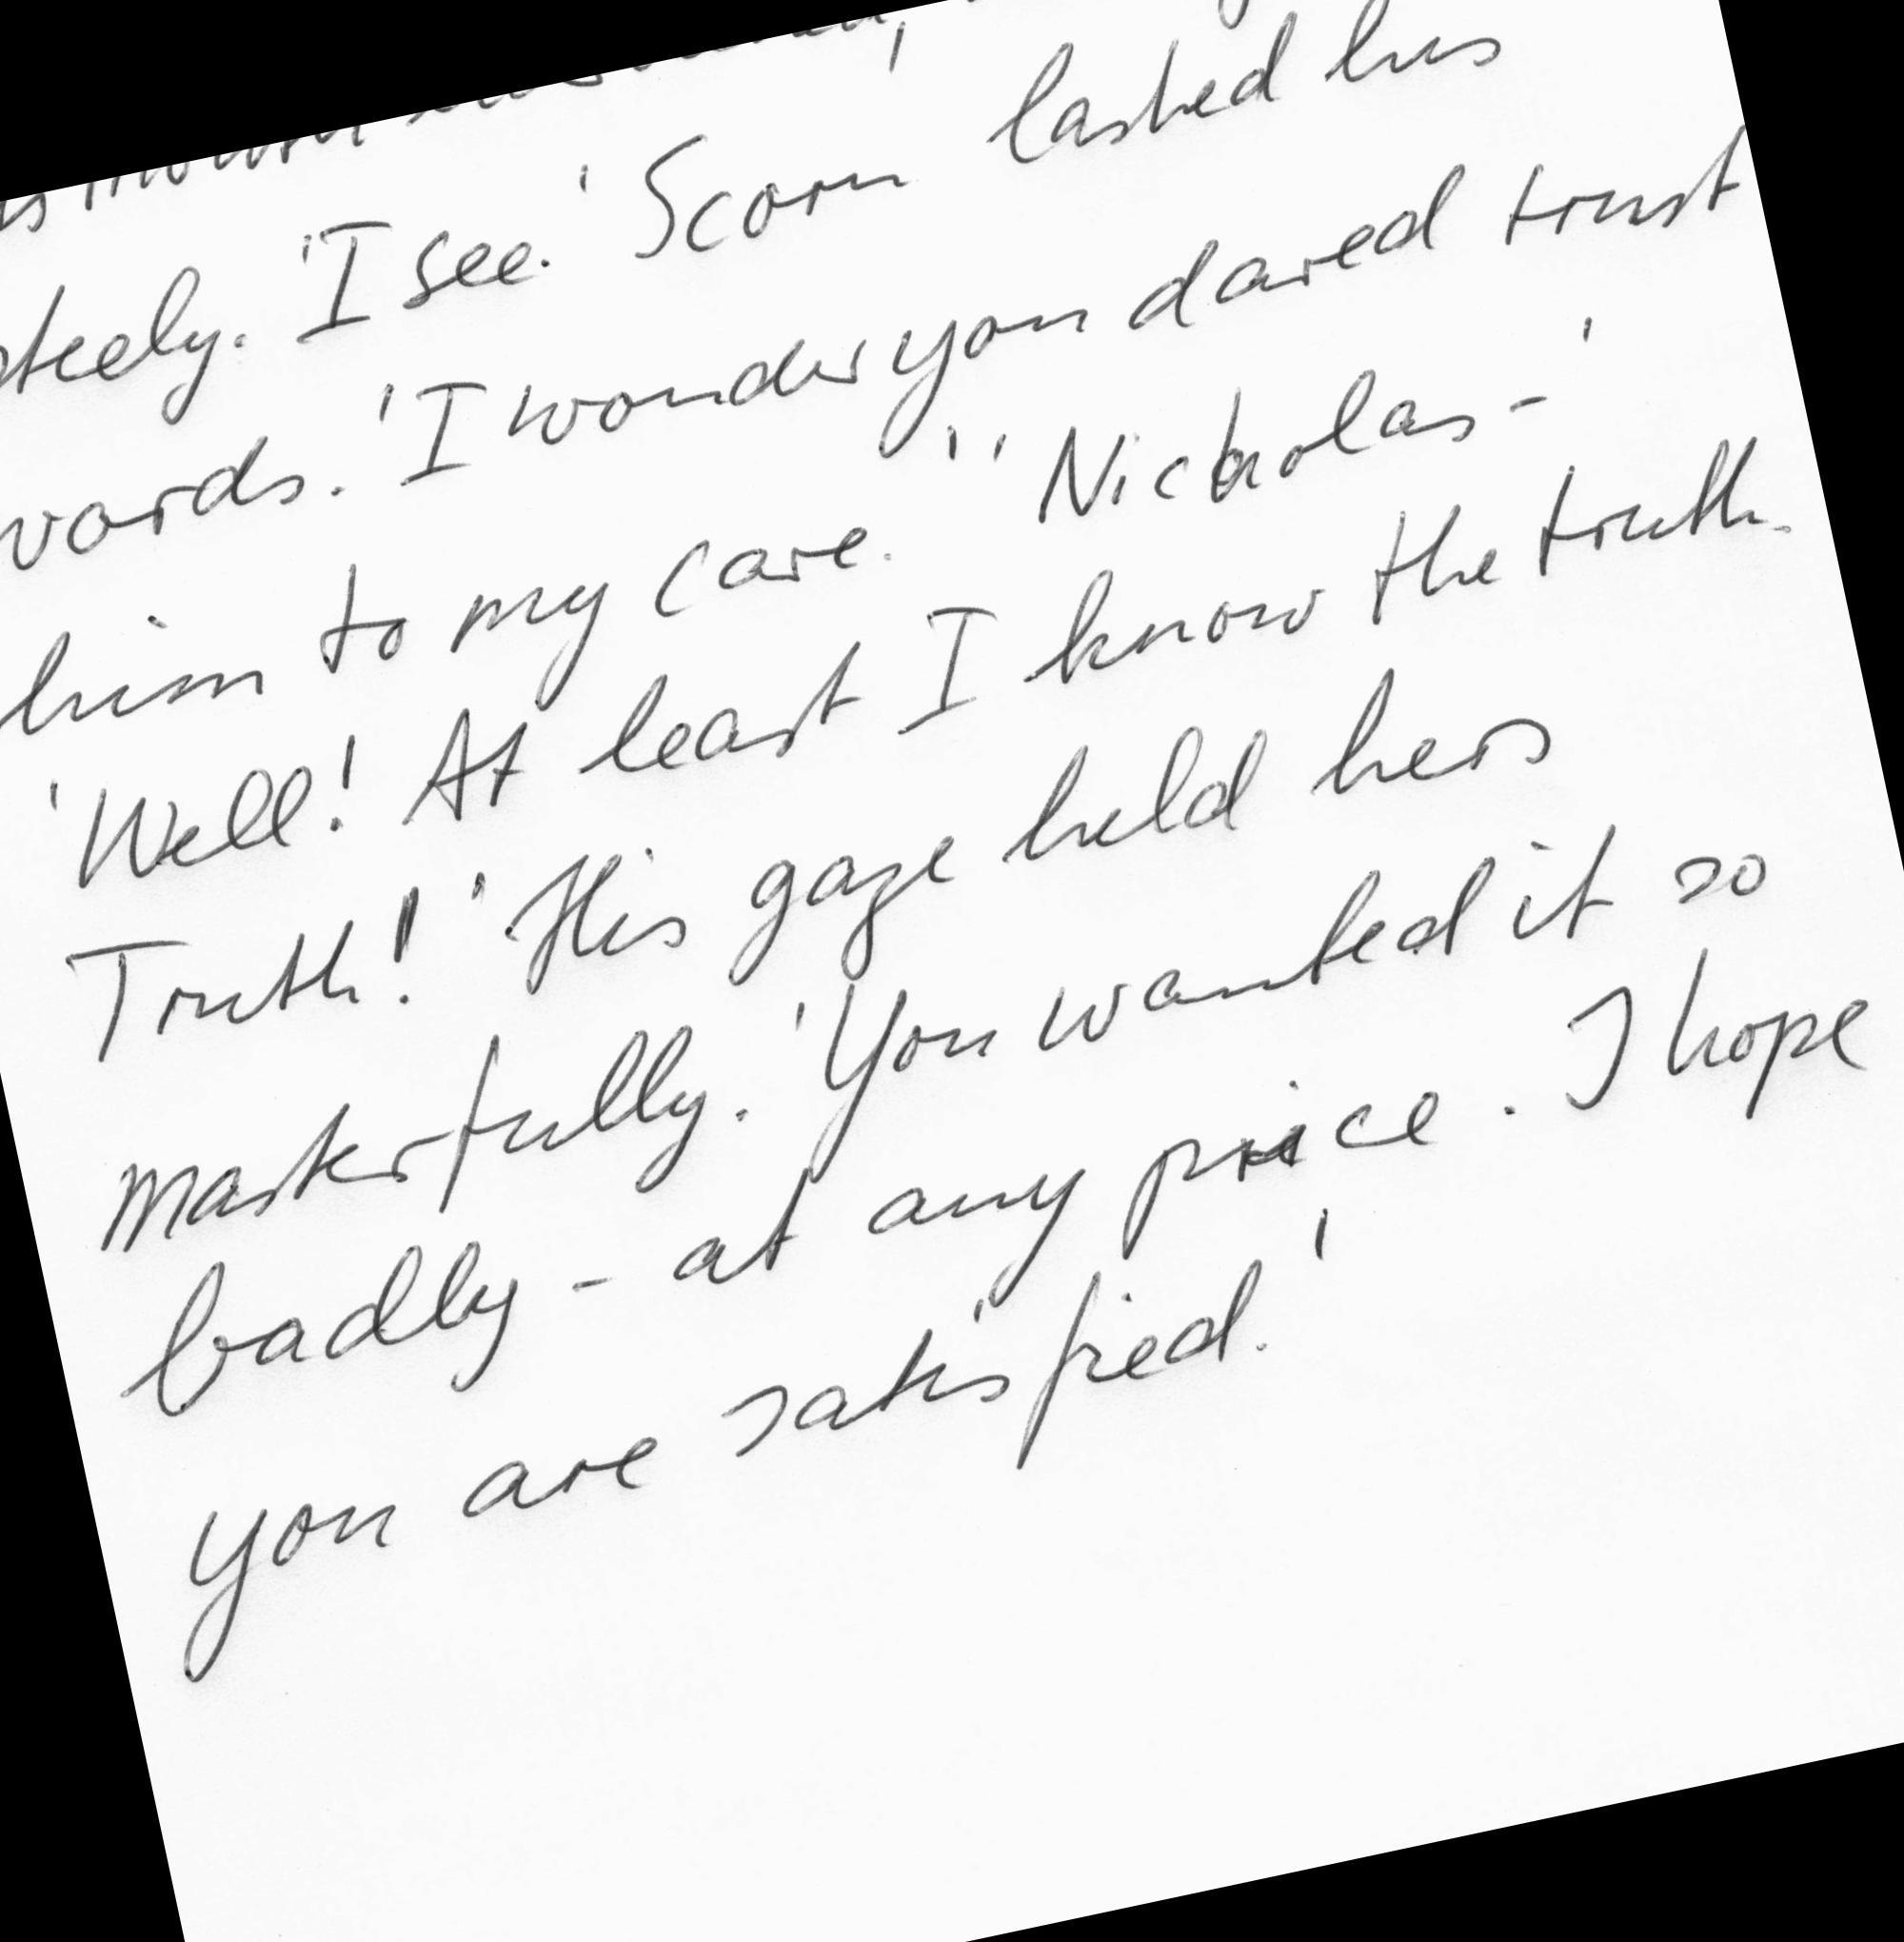 steely. 'I see.' Scorn lashed his
words. 'I wonder you dared trust
him to my care.' 'Nicholas-'
'Well! At least I know the truth.
Truth!' His gaze held hers
masterfully. 'You wanted it so
badly - at any price. I hope
you are satisfied.'